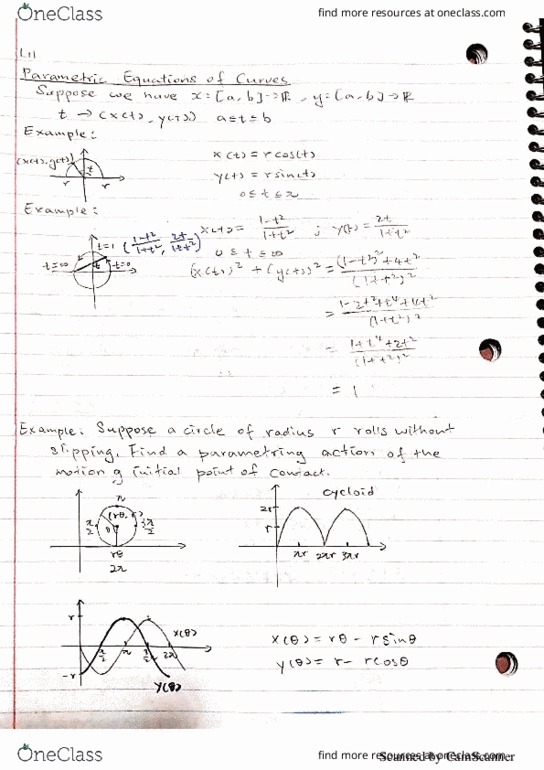 OneClass
find more resources at oneclass.com
L11
Parametric Equations of Curves
Suppose we have x=[a,b]→ℝ, y=[a,b]→ℝ
t → (x(t), y(t)) a≤t≤b
Example:
(x(t), y(t))
t
r r
x(t) = r cos(t)
y(t) = r sin(t)
0≤t≤π
Example:
x(t) = (1-t²)/(1+t²) ; y(t) = 2t/(1+t²)
t=1 ((1-t²)/(1+t²), 2t/(1+t²))
t=∞ t=0
0≤t≤∞
(x(t))² + (y(t))² = ((1-t²)²+4t²)/(1+t²)²
= (1-2t²+t⁴+4t²)/(1+t²)²
= (1+t⁴+2t²)/(1+t²)²
= 1
Example: Suppose a circle of radius r rolls without
slipping. Find a parametring action of the
motion of initial point of contact.
π
π/2 3π/2
θ
rθ
2π
cycloid
2r
r
πr 2πr 3πr
r
-r
π/2 π 2π
x(θ)
y(θ)
x(θ) = rθ - r sinθ
y(θ) = r - r cosθ
OneClass
find more resources at oneclass.com
Scanned by CamScanner